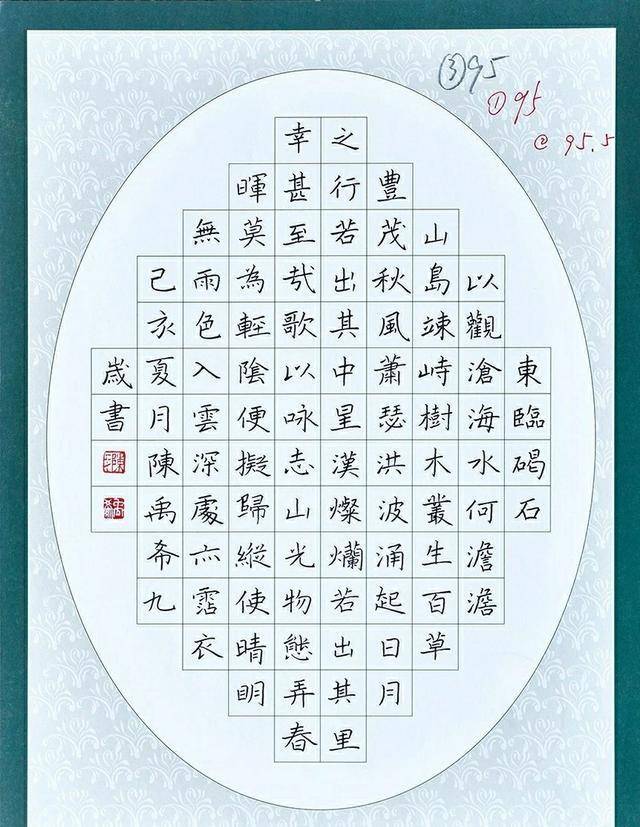 東臨碣石
以觀滄海水何澹澹
山島竦峙樹木叢生百草
豊茂秋風蕭瑟洪波涌起日月
之行若出其中星漢燦爛若出其里
幸甚至哉歌以咏志山光物態弄春
暉莫為輕陰便擬歸縱使晴明
無雨色入雲深處亦霑衣
己亥夏月陳禹希九
歲書
③95
①95
② 95.5